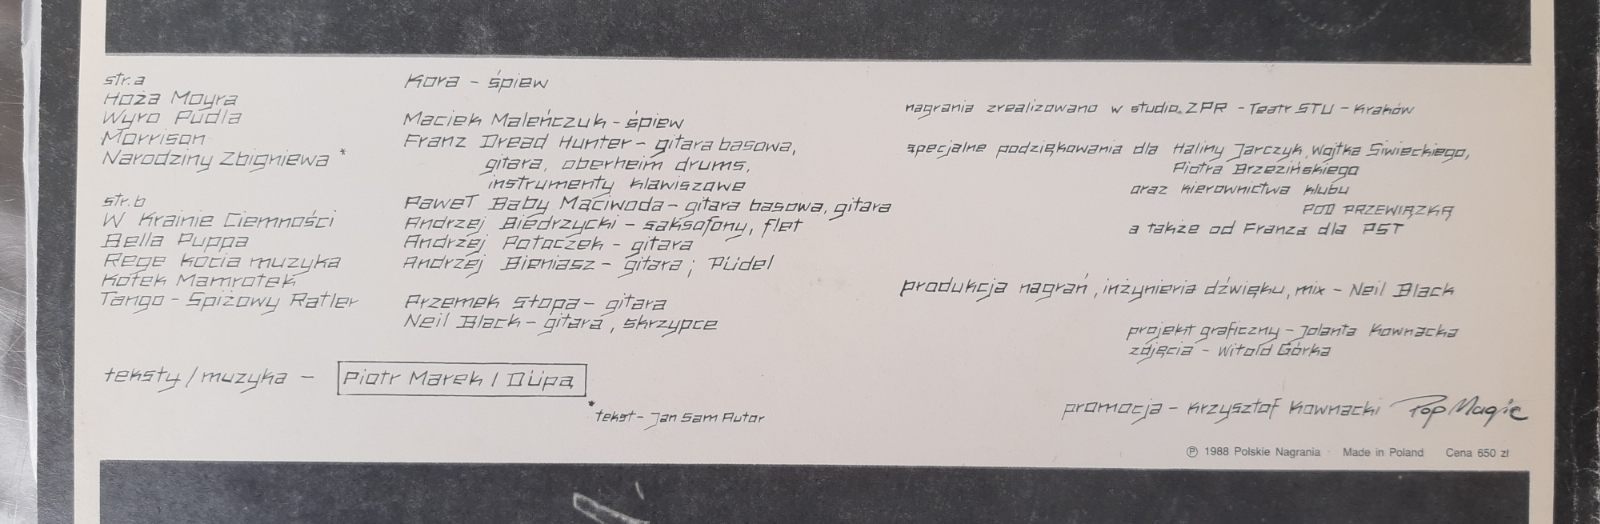 str. a
Hoża Moyra
Wyro Püdla
Morrison
Narodziny Zbigniewa *
str. b
W Krainie Ciemności
Bella Puppa
Rege kocia muzyka
Kotek Mamrotek
Tango - Spiżowy Ratler
Kora - śpiew
Maciek Maleńczuk - śpiew
Franz Dread Hunter - gitara basowa,
gitara, oberheim drums,
instrumenty klawiszowe
Paweł Baby Maciwoda - gitara basowa, gitara
Andrzej Biedrzycki - saksofony, flet
Andrzej Potoczek - gitara
Andrzej Bieniasz - gitara ; Püdel
Przemek Stopa - gitara
Neil Black - gitara , skrzypce
teksty / muzyka - Piotr Marek / Düpą
* tekst - Jan Sam Autor
nagrania zrealizowano w studio ZPR - Teatr STU - Kraków
specjalne podziękowania dla Haliny Jarczyk, Wojtka Siwieckiego,
Piotra Brzezińskiego
oraz kierownictwa klubu
POD PRZEWIĄZKĄ
a także od Franza dla PST
produkcja nagrań , inżynieria dźwięku, mix - Neil Black
projekt graficzny - Jolanta Kownacka
zdjęcia - Witold Górka
promocja - Krzysztof Kownacki Pop Magic
℗ 1988 Polskie Nagrania Made in Poland Cena 650 zł